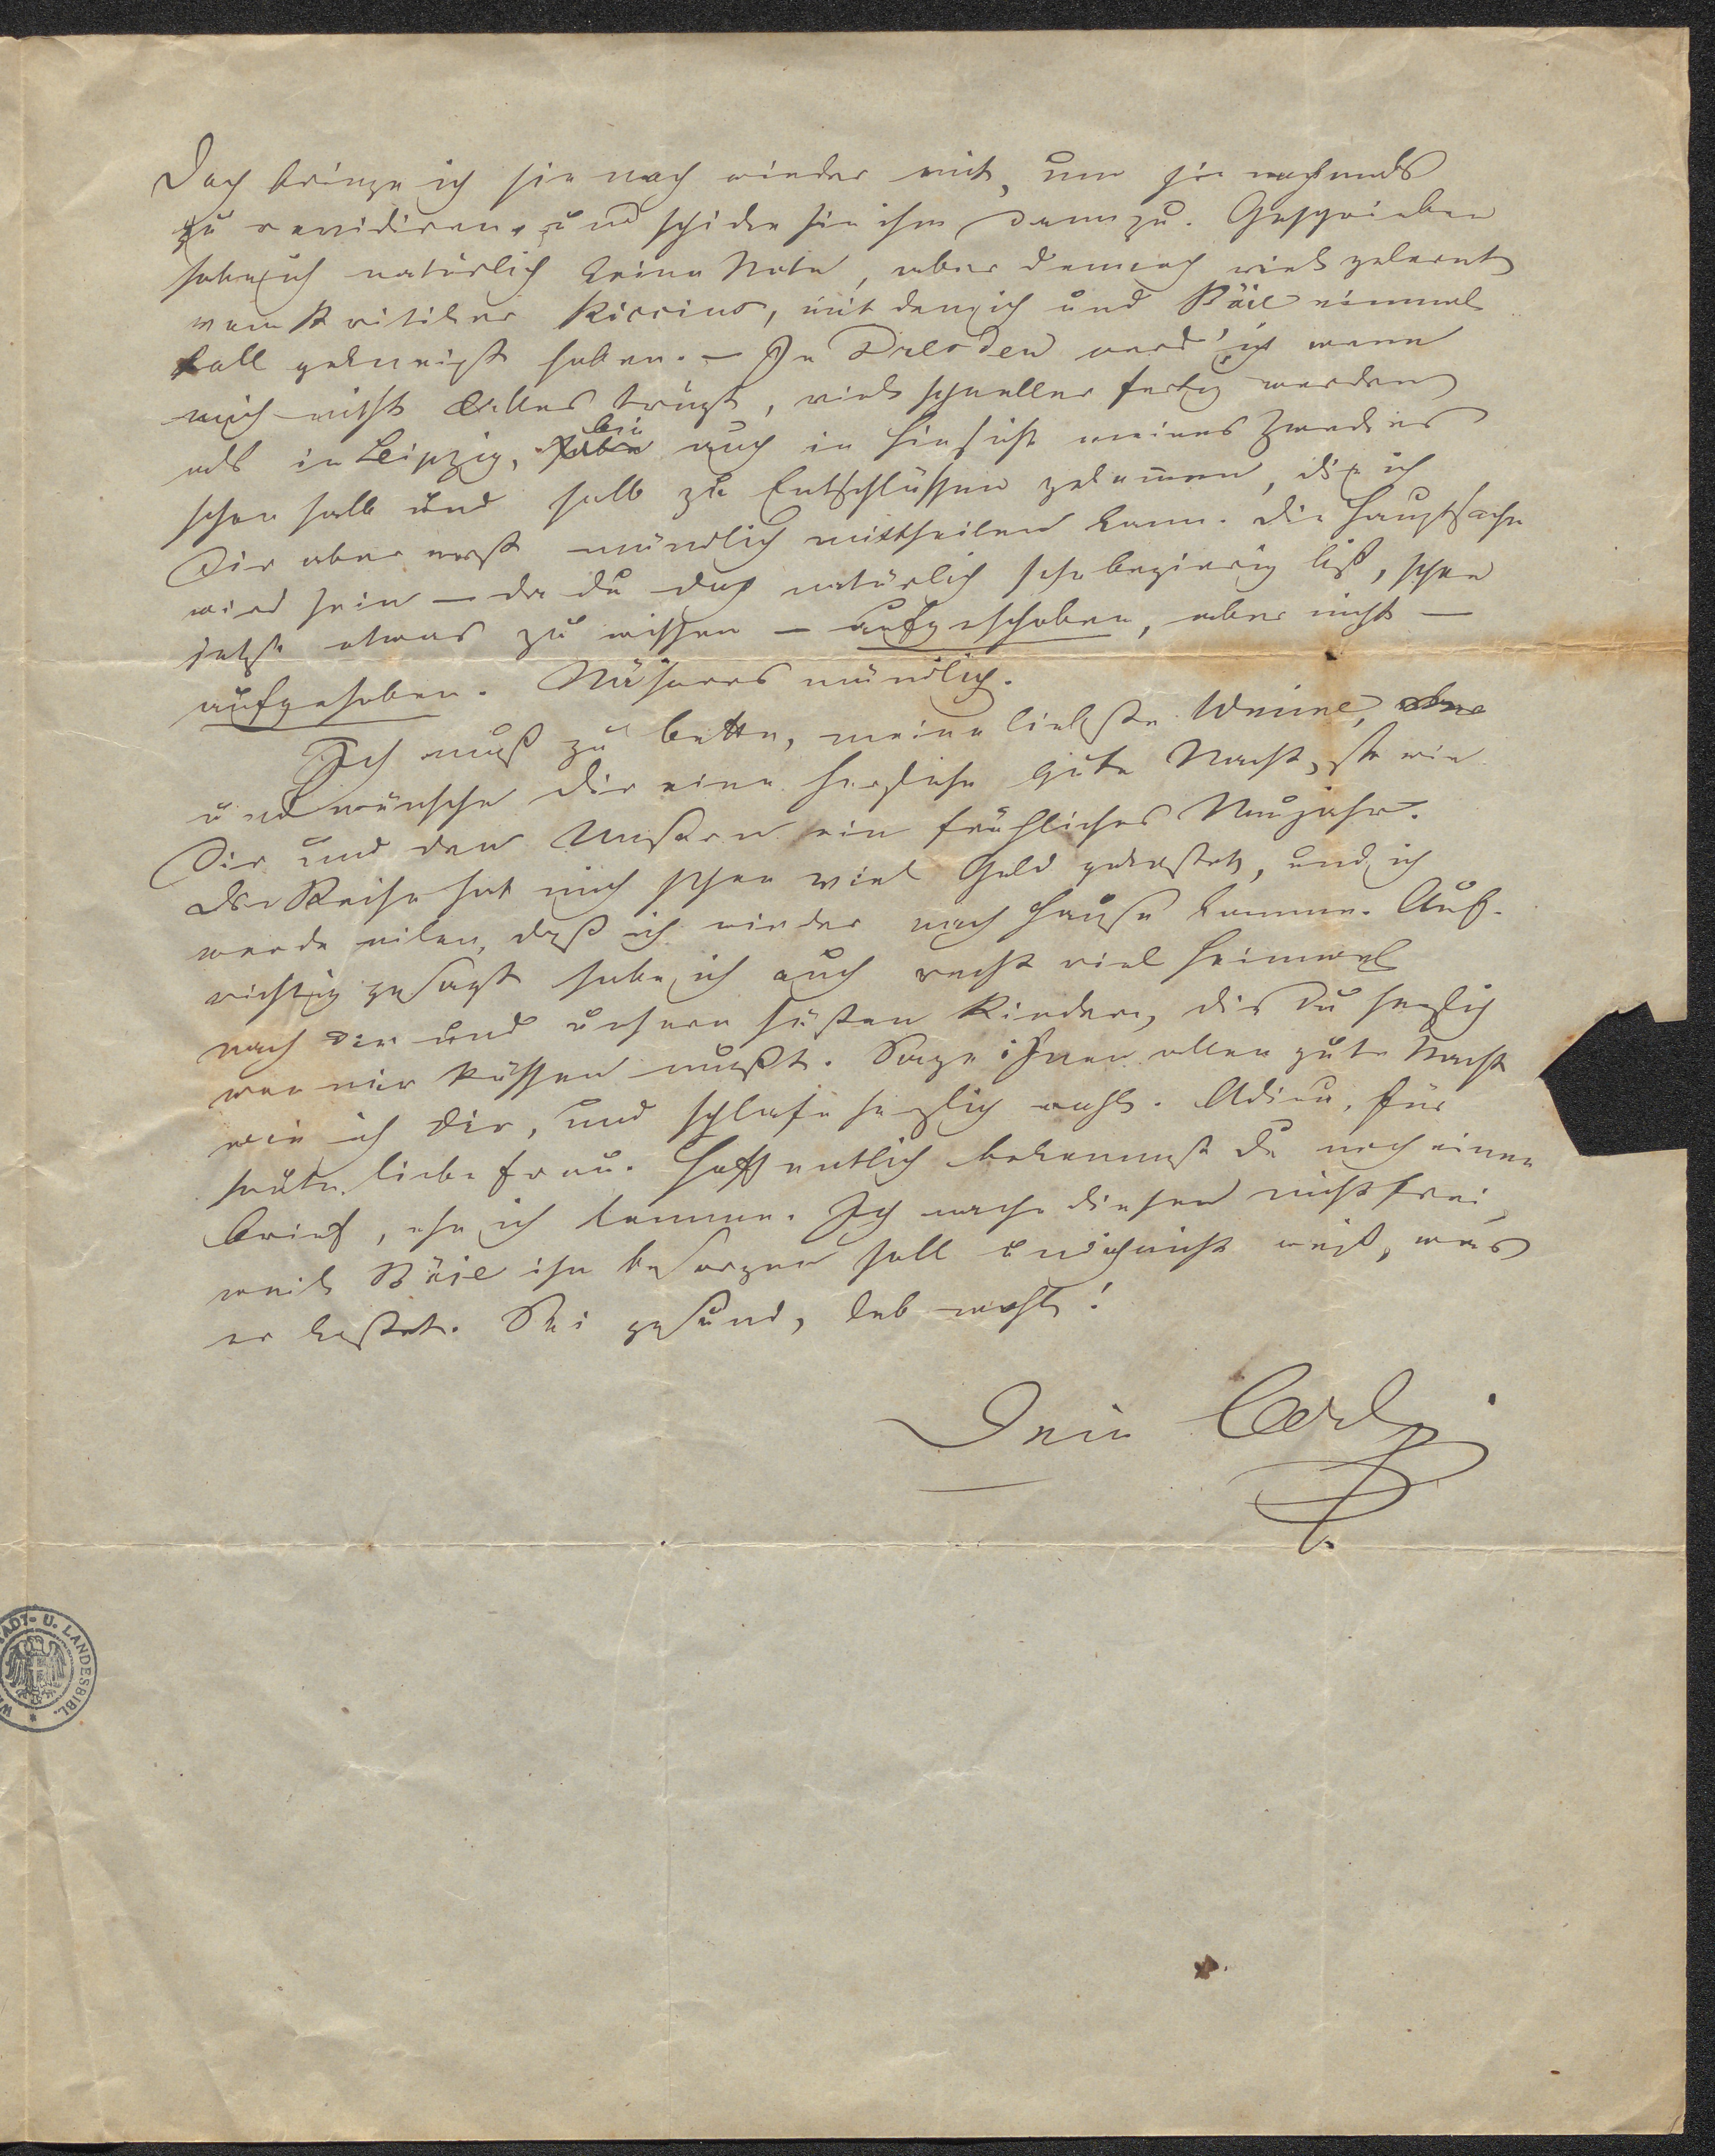 Doch bringe ich sie noch wieder mit, um sie nochmals
zu revidiren, und schicke sie ihm dann zu. Geschrieben
habe ich natürlich keine Note, aber dennoch viel gelernt
vom Kritiker Riccius, mit dem ich und Böie einmal
toll gekneipt haben. – In Dresden werd' ich wenn
mich nicht Alles trügt, viel schneller fertig werden
als in Leipzig, bin auch in Hinsicht meines Zweckes
schon halb und halb zu Entschlüssen gekommen, die ich
Dir aber erst mündlich mittheilen kann. Die Hauptsache
wird sein – da du doch natürlich sehr begierig bist, schon
jetzt etwas zu wissen – aufgeschoben, aber nicht –
aufgehoben. Näheres mündlich.
Ich muß zu Bette, meine liebste Weine,
und wünsche Dir eine herzliche gute Nacht, so wie
Dir und den Unsern ein fröhliches Neujahr.
Die Reise hat mich schon viel Geld gekostet, und ich
werde eilen, daß ich wieder nach Hause komme. Auf-
richtig gesagt habe ich auch recht viel Heimweh
nach Dir und unsern süßen Kindern, die Du herzlich
von mir küssen mußt. Sage ihnen allen gute Nacht
wie ich Dir, und schlafe herzlich wohl. Adieu, für
heute, liebe Frau. Hoffentlich bekommst Du noch einen
Brief, ehe ich komme. Ich mache diesen nicht frei,
weil Böie ihn besorgen soll und ich nicht weiß, was
er kostet. Sei gesund, leb wohl!
Dein Carl
STADT- U. LANDESBIBL.